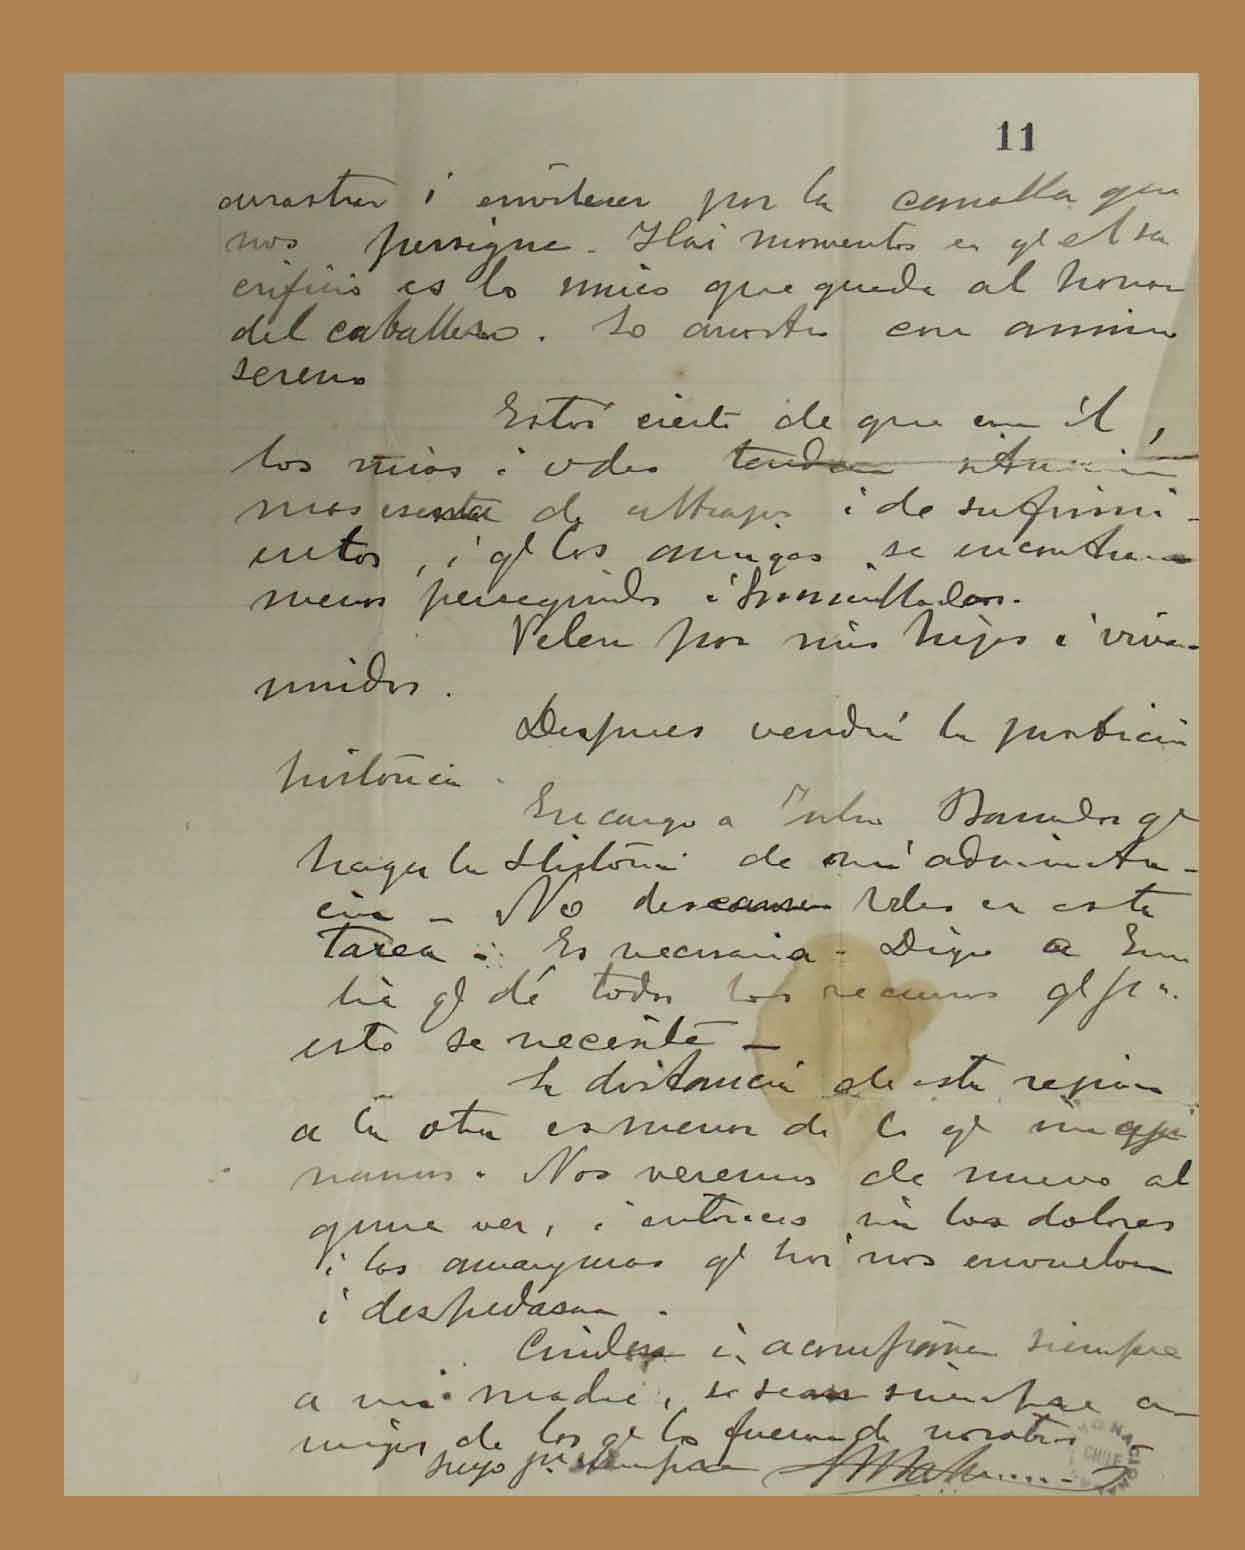 11
arrastrar i envolver por la canalla que
nos persigue. Hai momentos en qe el sa
crificio es lo único que queda al honor
del caballero. Lo arrostro con ánimo
sereno
Estoi cierto de que con él,
los mios i Udes tendran situacion
mas esenta de ultrajes i de sufrimi-
entos, i qe los amigos se encontraran
menos perseguidos i humillados.
Velen por mis hijos i vivan
unidos.
Despues vendrá la justicia
histórica.
Encargo a Julio Bañados qe
haga la Historia de mi administra-
cion - No descansen Udes en esta
tarea. Es necesaria - Digo a Emi
lia qe dé todos los recursos qe pa.
esto se necesite -
La distancia de esta rejion
a la otra es menor de lo qe imaji
namos. Nos veremos de nuevo al
guna vez, i entonces sin los dolores
i las amarguras qe hoi nos envuelven
i despedasan.
Cuiden i acompañen siempre
a mi madre, i sean siempre a-
migos de los qe lo fueron de nosotros
Suyo pa. siempre
NACIONAL
CHILE